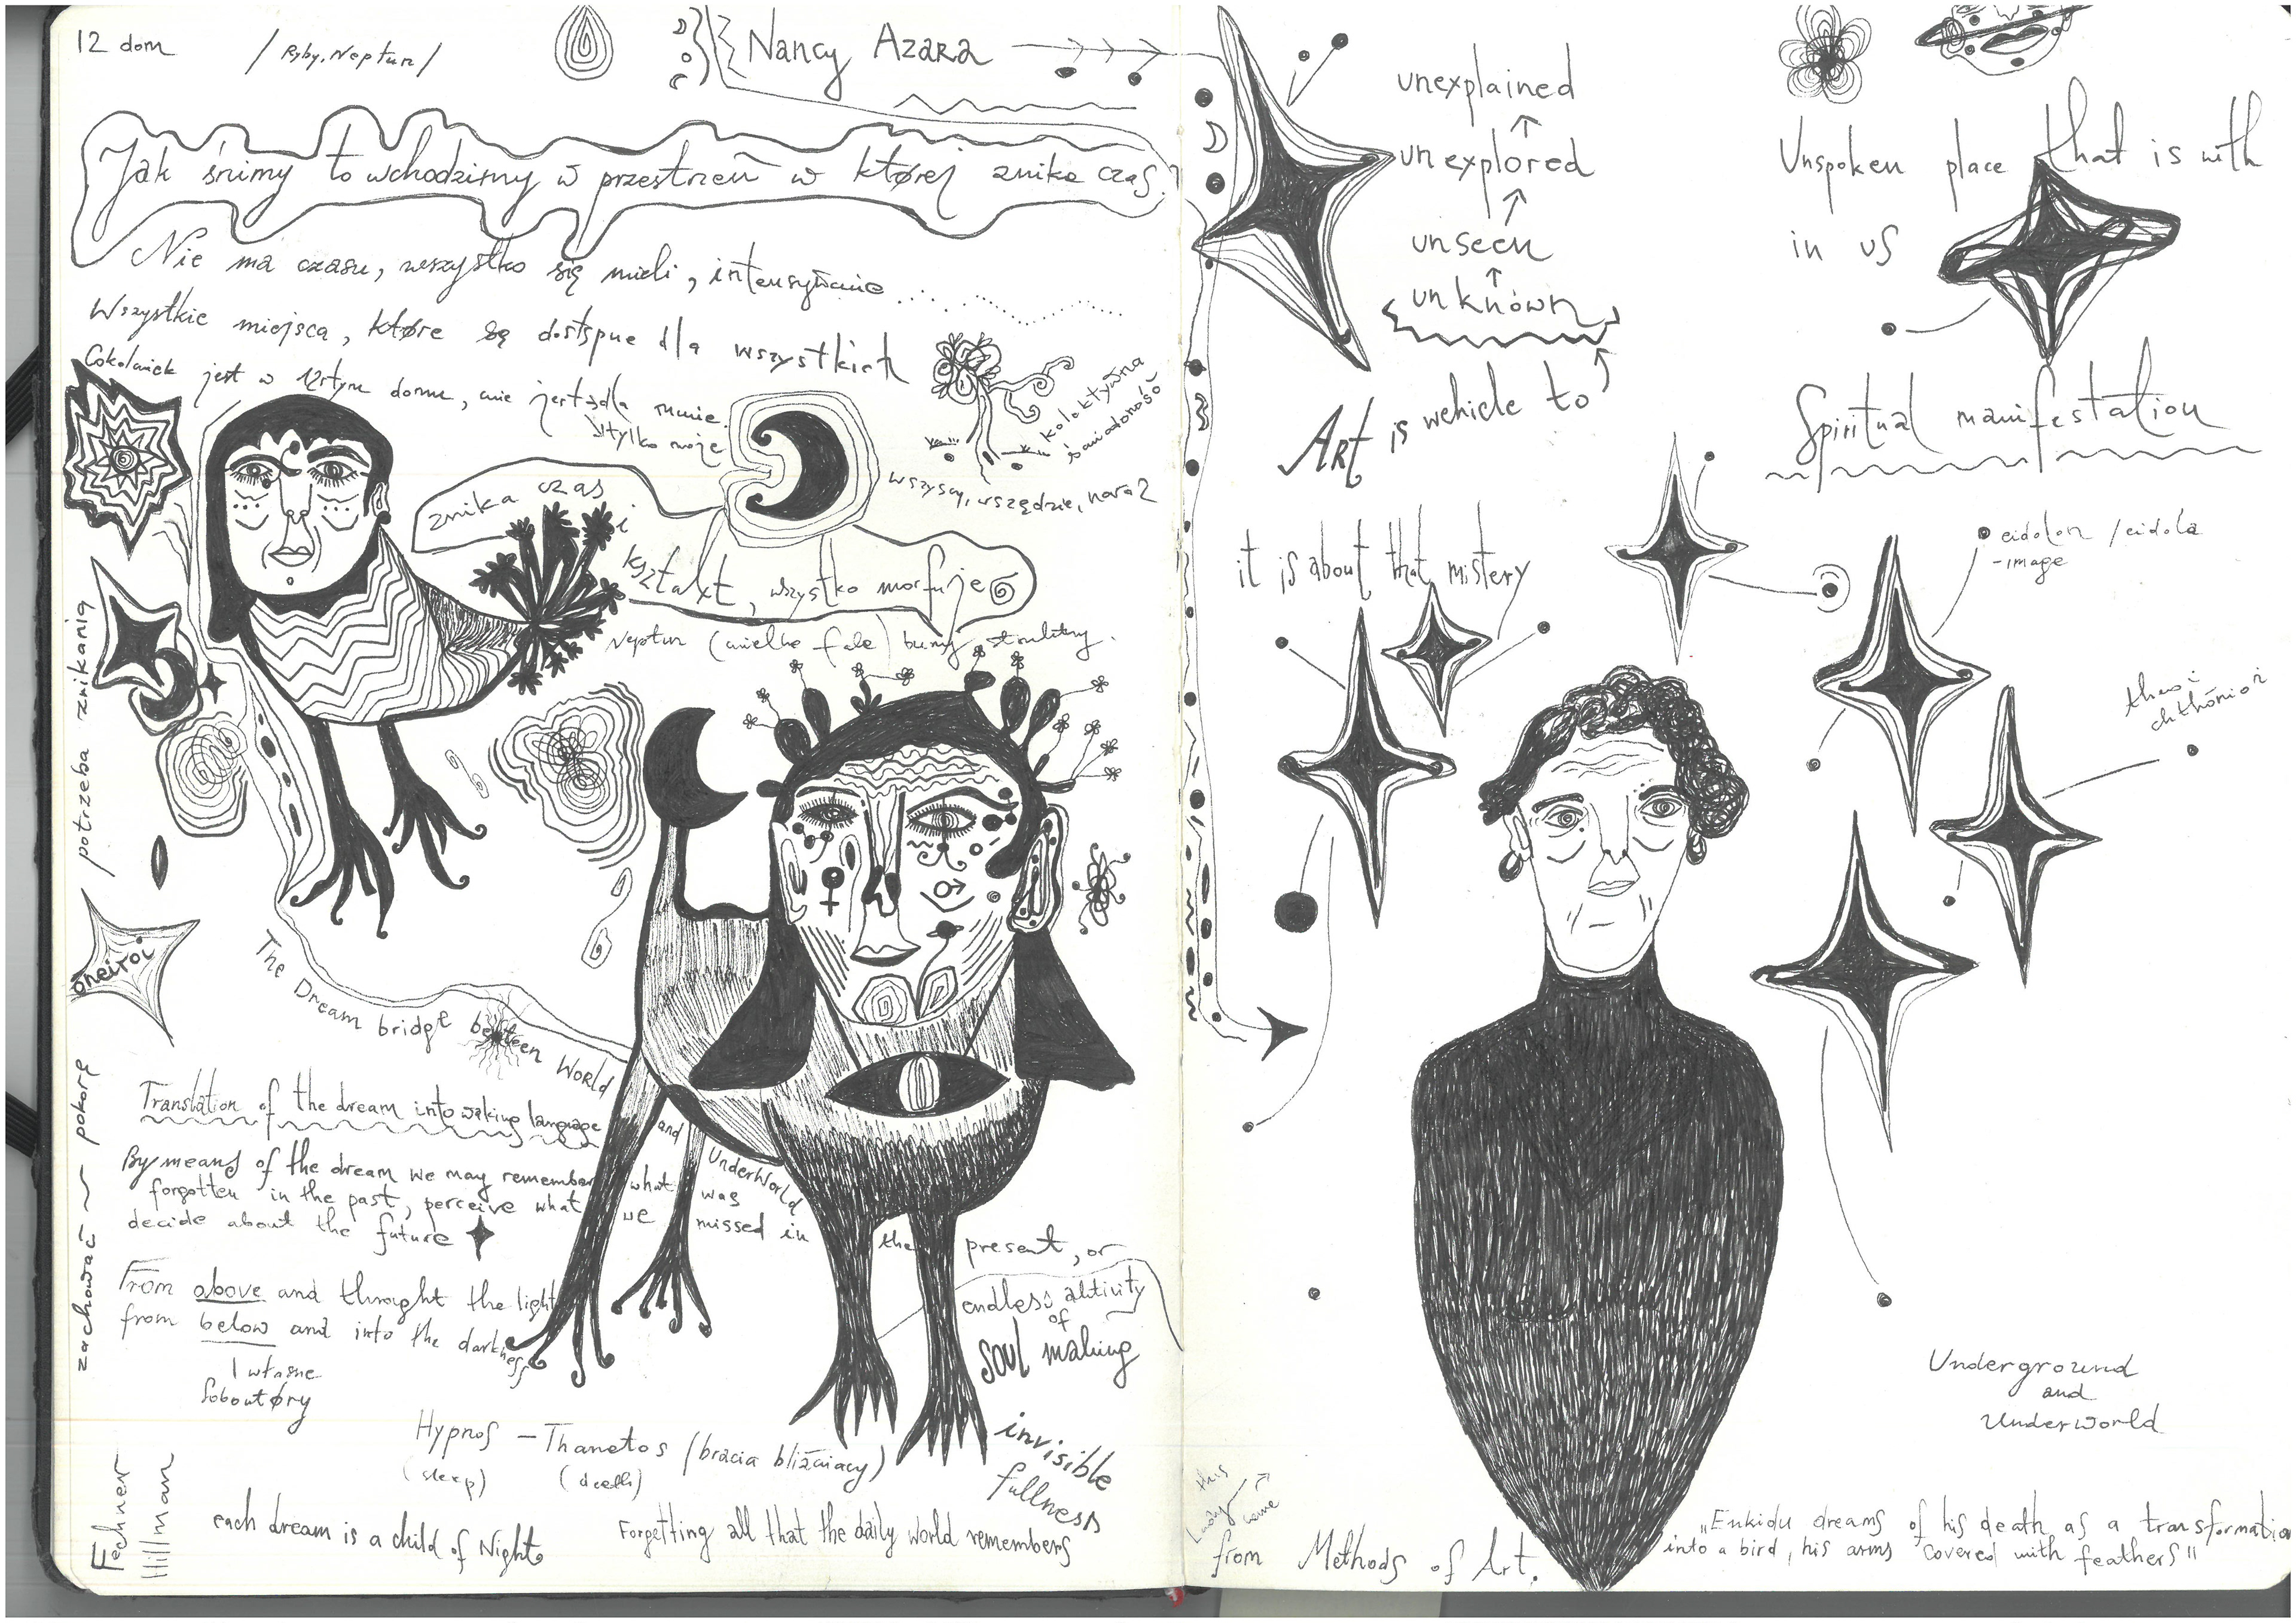 12 dom
/ Ryby, Neptun /
Nancy Azara
Jak śnimy to wchodzimy w przestrzeń w której znika czas.
Nie ma czasu, wszystko się mieli, intensywnie
Wszystkie miejsca, które są dostępne dla wszystkich
Cokolwiek jest w 12stym domu, nie jest dla mnie
tylko moje
kolektywna
świadomość
wszyscy, wszędzie, naraz
znika czas
i
kształt, wszystko morfuje
Neptun (wielkie fale) burzy struktury.
potrzeba znikania
oneiroi
The Dream bridge between World
and
UnderWorld
zachować ~ pokorę
Translation of the dream into waking language
By means of the dream we may remember what was
forgotten in the past, perceive what we missed in the present, or
decide about the future
From above and throught the light
from below and into the darkness
I własne
endless aktivity
of
soul making
Hypnos – Thanatos (bracia bliźniacy)
(sleep) (death)
invisible
fullness
Fechner
Hillman
each dream is a child of Night
Forgetting all that the daily world remembers
unexplained
unexplored
unseen
unknown
Art is wehicle to
it is about that mistery
Unspoken place that is with
in us
Spiritual manifestation
eidolon / eidola
-image
theoi
chthónioi
Underground
and
Underworld
this
Lady came
from Methods of Art.
„Enkidu dreams of his death as a transformation
into a bird, his arms covered with feathers"